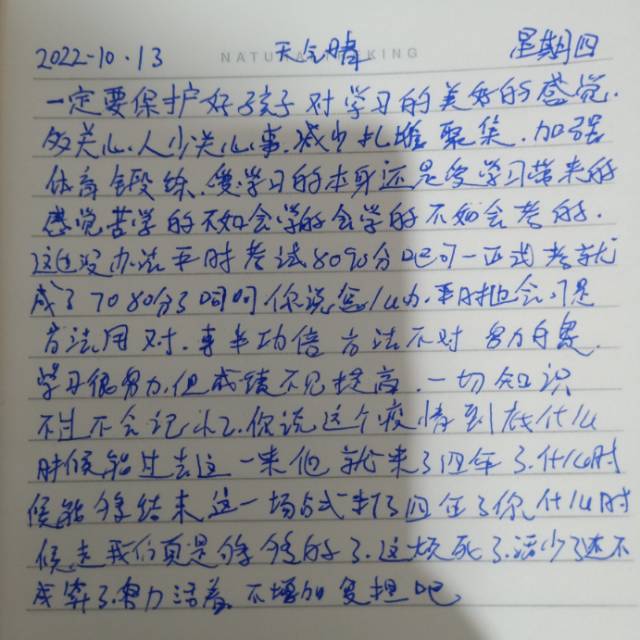 2022-10.13 天气晴 星期四
NATU KING
一定要保护好孩子对学习的美好的感觉.
多关心.人少关心事.减少扎堆聚集.加强
体育锻练.爱学习的本身还是爱学习带来的
感觉苦学的不如会学的会学的不如会考的.
这也没办法平时考试8090分吧可一正式考就
成了7080分了呵呵你说怎么办.平时也会可是
方法用对.事半功倍方法不对努力白费.
学习很努力.但成绩不见提高.一切知识
不过不会记忆.你说这个疫情到底什么
时候能过去这一来他就来了四年了.什么时
候能够结束这一场
四年了你什么时
候走我们真是够够的了.这烦死了.活少了还不
成算了.努力活着.不增加负担吧